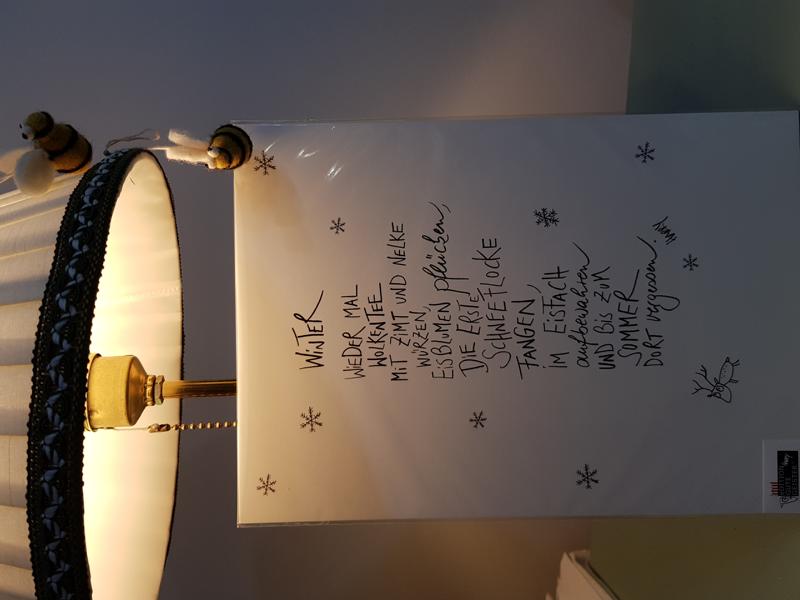 WINTER
WIEDER MAL
WOLKENTEE
MIT ZIMT UND NELKE
WÜRZEN,
EISBLUMEN pflücken,
DIE ERSTE
SCHNEEFLOCKE
FANGEN,
IM EISFACH
aufbewahren
UND BIS ZUM
SOMMER
DORT vergessen.
EDITION
GUTE
GEISTER